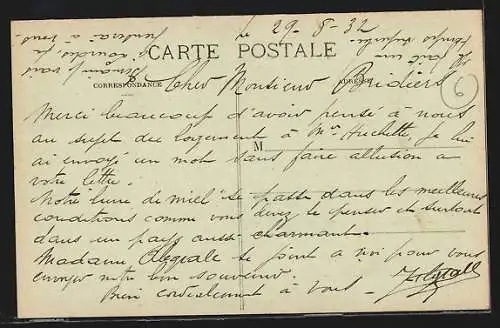 le 29-8-32
CARTE POSTALE
CORRESPONDANCE
ADRESSE
Cher Monsieur Bridiers
Merci beaucoup d'avoir pensé à nous
au sujet du logement à Mr Huchette, je lui
M
ai envoyé un mot sans faire allusion a
votre lettre.
Notre lune de miel se passe dans les meilleures
conditions comme vous devez le penser et surtout
dans un pays aussi charmant.
Madame se joint a moi pour vous
envoyer notre bon souvenir.
Bien cordialement à vous
Il fait un
temps superbe
Demain je vais
à Lourdes, je
penserai à vous
6